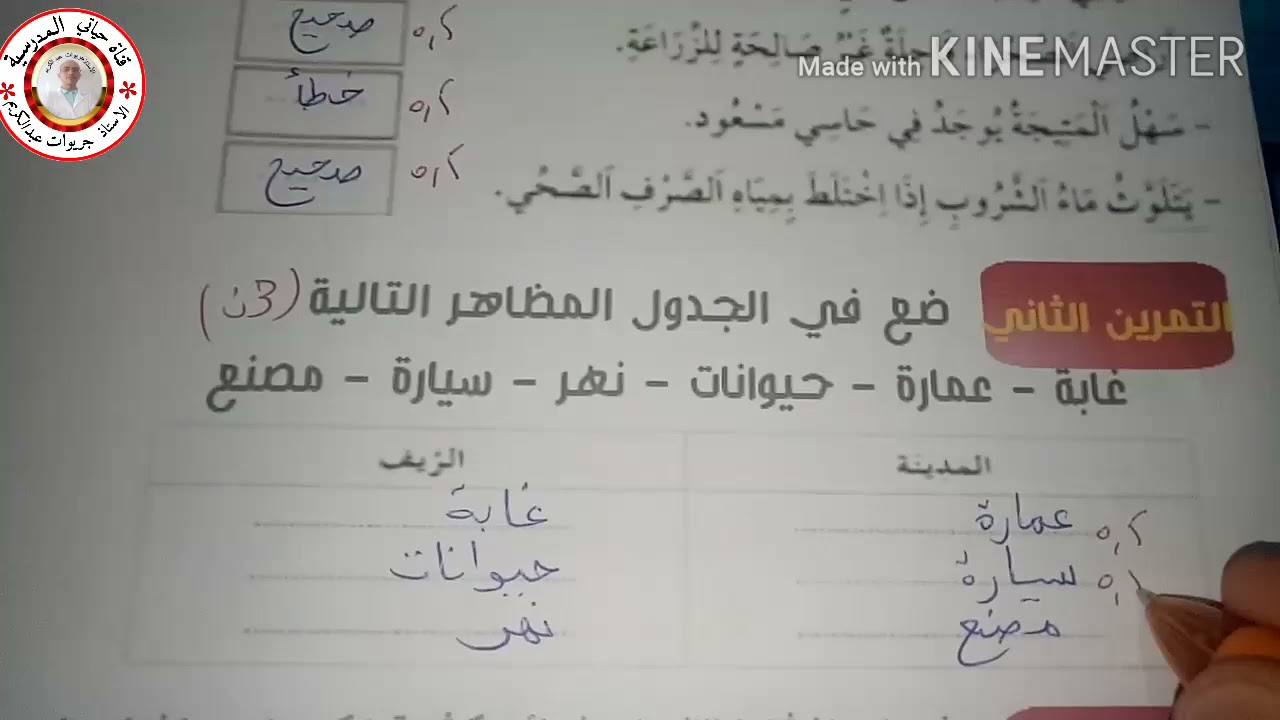 قناة حياتي المدرسية
الاستاذ جريوات عبدالكريم
Made with KINEMASTER
غَيْرُ صَالِحَةٍ لِلزِّرَاعَةِ. 0,5 صحيح
- سَهْلُ الْمَتِيجَةُ يُوجَدُ فِي حَاسِي مَسْعُود. 0,5 خطأ
- يَتَلَوَّثُ مَاءُ الشَّرُوبِ إِذَا اِخْتَلَطَ بِمِيَاهِ الصَّرْفِ الصِّحِّي. 0,5 صحيح
التمرين الثاني ضع في الجدول المظاهر التالية (3ن)
غابة - عمارة - حيوانات - نهر - سيارة - مصنع
المدينة الريف
0,5 عمارة غابة
سيارة حيوانات
مصنع نهر